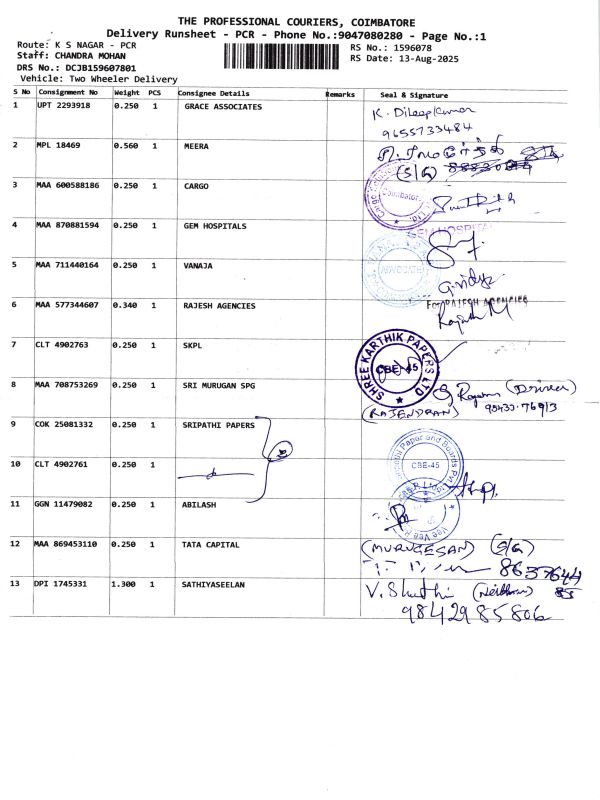 THE PROFESSIONAL COURIERS, COIMBATORE
Delivery Runsheet - PCR - Phone No.:9047080280 - Page No.:1
Route: K S NAGAR - PCR
RS No.: 1596078
Staff: CHANDRA MOHAN
RS Date: 13-Aug-2025
DRS No.: DCJB159607801
Vehicle: Two Wheeler Delivery
S No Consignment No Weight PCS Consignee Details Remarks Seal & Signature
1 UPT 2293918 0.250 1 GRACE ASSOCIATES K. Dileepkumar
9655733484
2 MPL 18469 0.560 1 MEERA
(S/G)
3 MAA 600588186 0.250 1 CARGO Coimbatore
4 MAA 870881594 0.250 1 GEM HOSPITALS GEM HOSPITAL
ADVOCATE
5 MAA 711440164 0.250 1 VANAJA G. Vidya
6 MAA 577344607 0.340 1 RAJESH AGENCIES For RAJESH AGENCIES
7 CLT 4902763 0.250 1 SKPL SHREE KARTHIK PAPERS LTD
CBE-45
8 MAA 708753269 0.250 1 SRI MURUGAN SPG (Driver)
(RAJENDRAN)
9 COK 25081332 0.250 1 SRIPATHI PAPERS
Paper and Boards Pvt Ltd
CBE-45
10 CLT 4902761 0.250 1
11 GGN 11479082 0.250 1 ABILASH
Vee Vee
12 MAA 869453110 0.250 1 TATA CAPITAL (MURUGESAN) (S/G)
8637644
13 DPI 1745331 1.300 1 SATHIYASEELAN V. Shuthi
9842985806